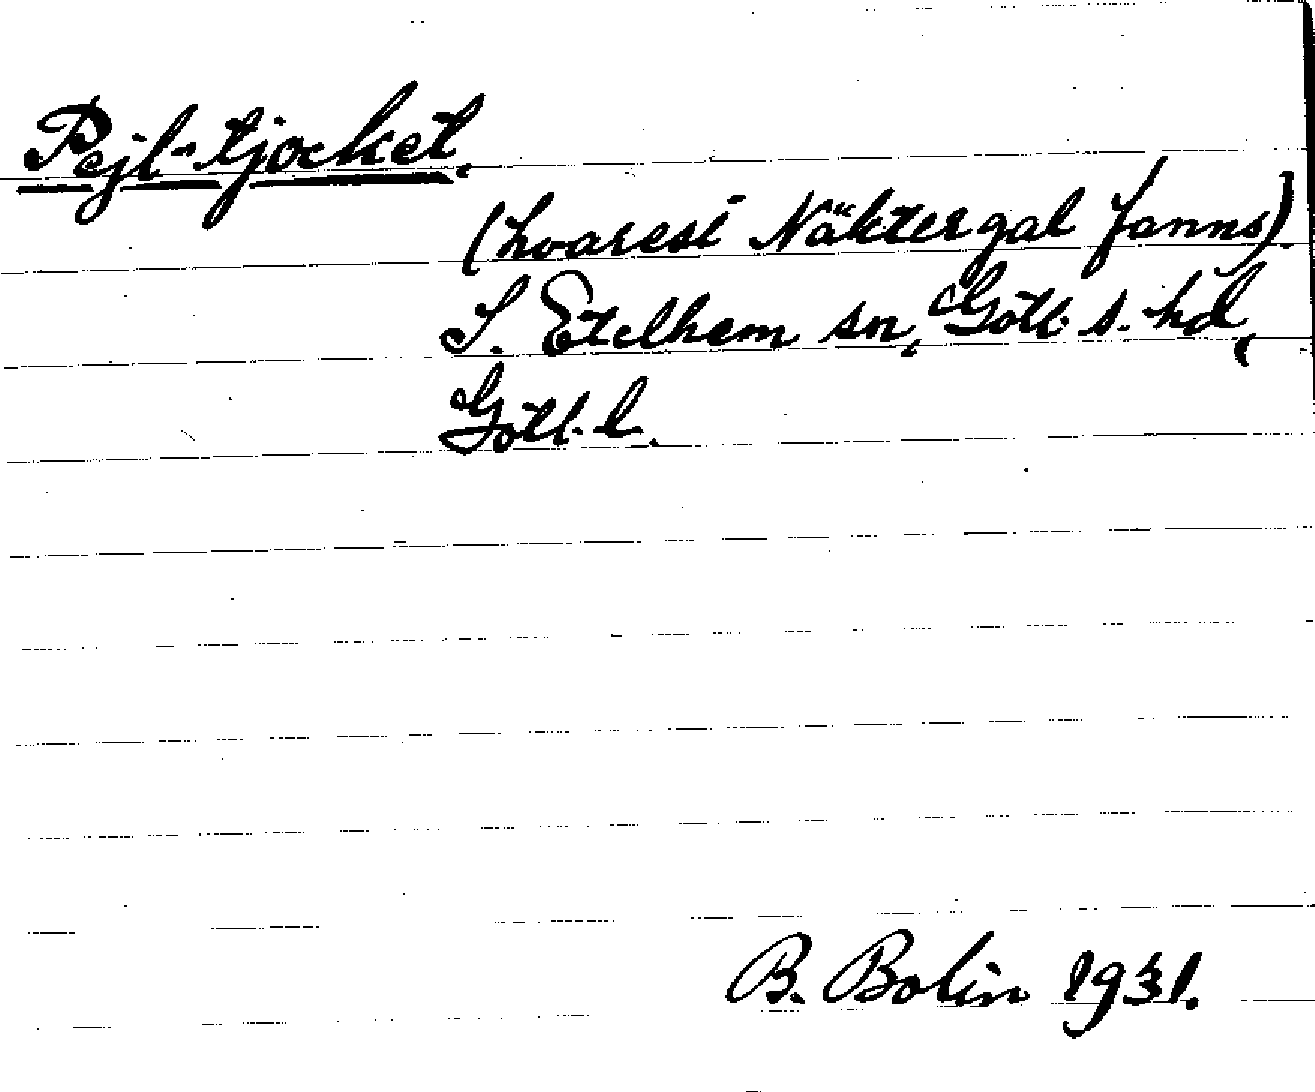 Pejl-tjocket,
(hvarest Näktergal fanns).
I. Etelhem sn, Gotl. s. hd,
Gotl. l.
B. Bolin 1931.